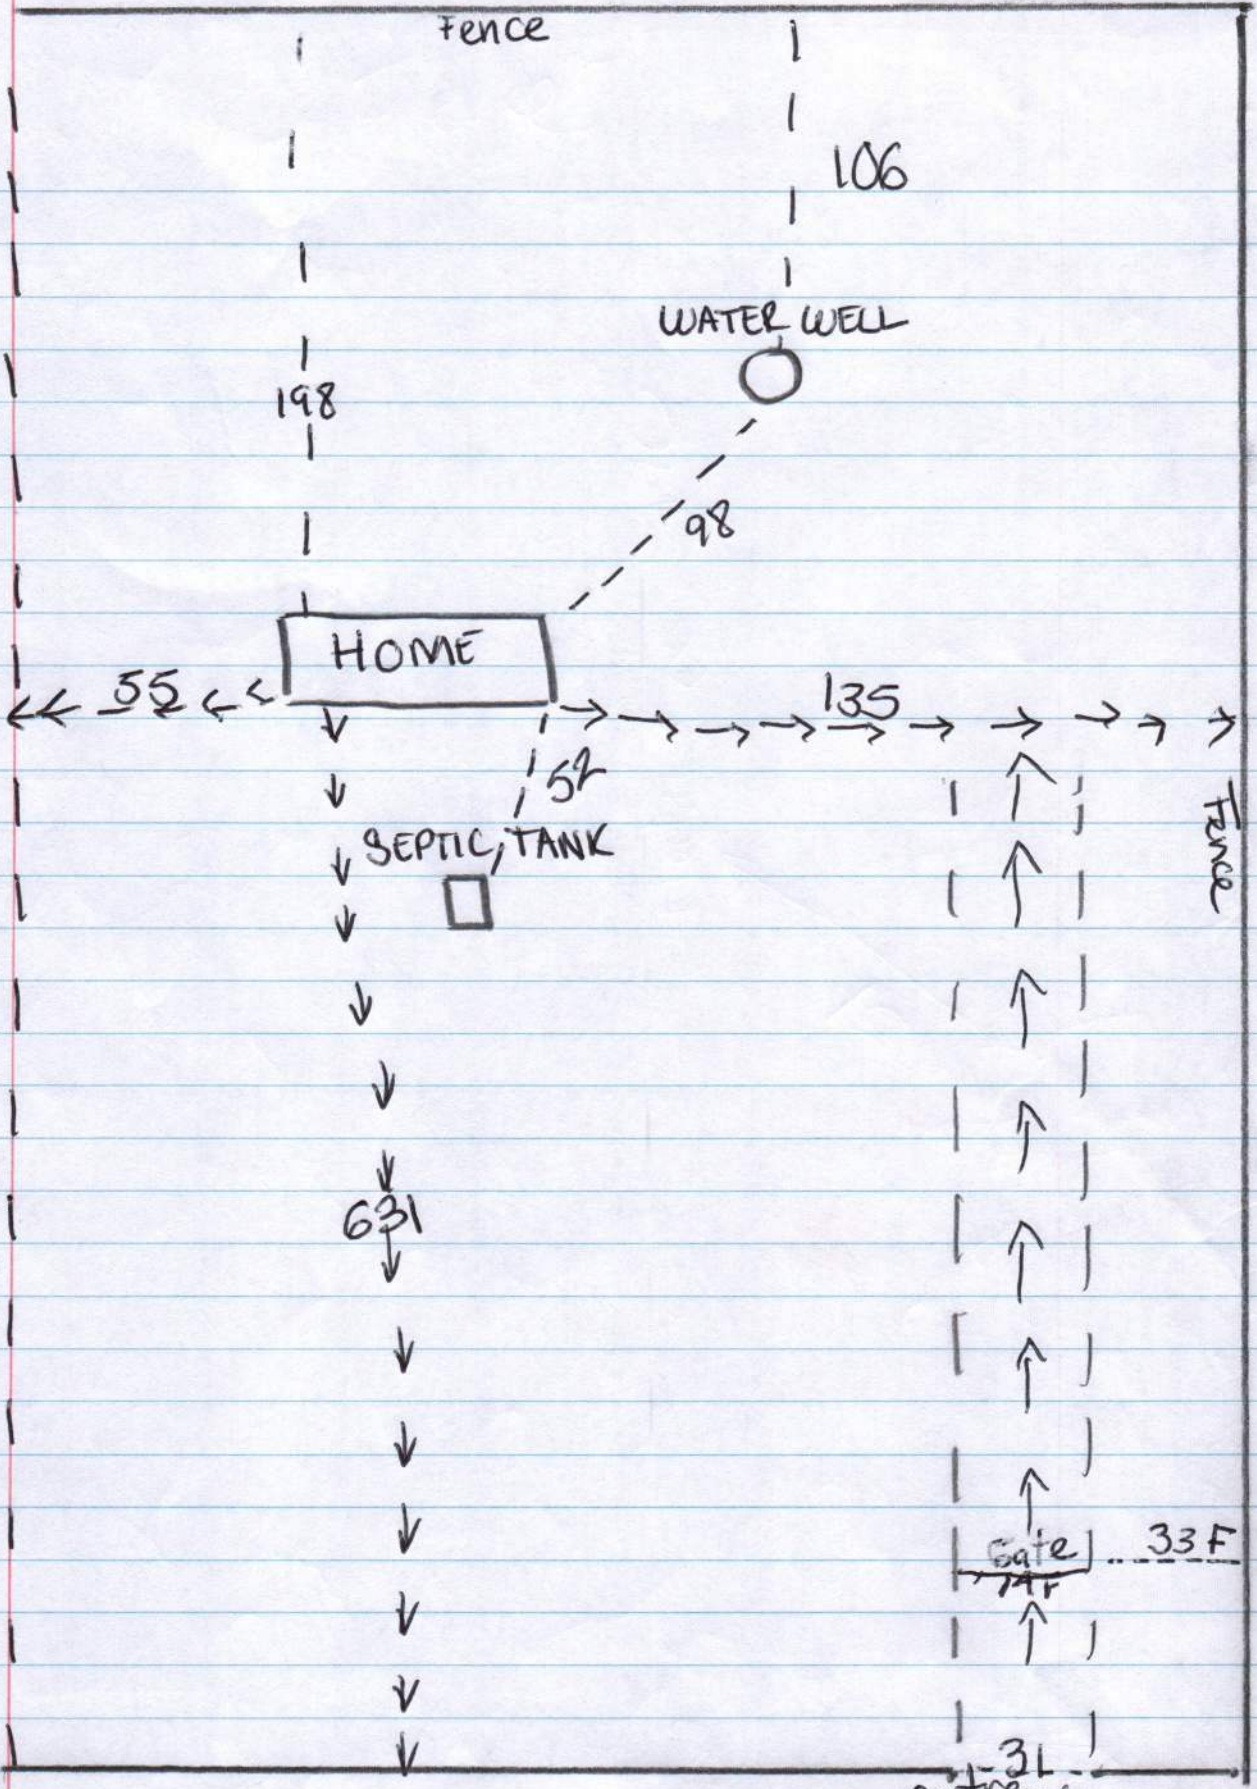 Fence
106
WATER WELL
198
98
HOME
55
135
52
Fence
SEPTIC TANK
631
Gate
33 F
14 F
31